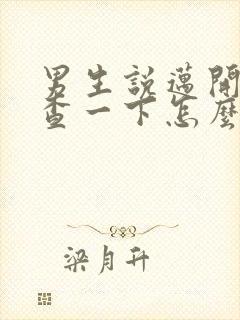 男生說邁開
查一下怎麼
梁月升